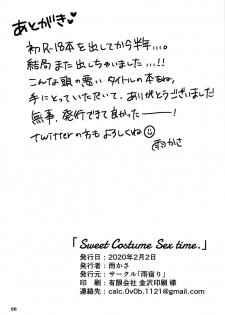 あとがき♥
初R-18本を出してから半年…。
結局また出しちゃいました…!!
こんな頭の悪いタイトルの本をね、
手にとっていただいて、ありがとうございます。
無事、発行できて良かったーー!
twitterの方もよろしくね☺
雨かさ
「Sweet Costume Sex time.」
発行日：2020年2月2日
発行者：雨かさ
発行元：サークル「雨宿り」
印　刷：有限会社 金沢印刷 様
連絡先：calc.0v0b.1121@gmail.com